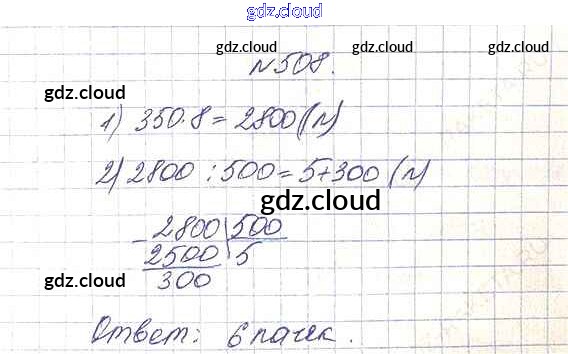 gdz.cloud
gdz.cloud gdz.cloud
№508.
gdz.cloud
1) 350·8=2800(л)
2) 2800:500=5+300 (л)
gdz.cloud
-2800|500
2500 5
300
gdz.cloud gdz.cloud
Ответ: 6 пачек.